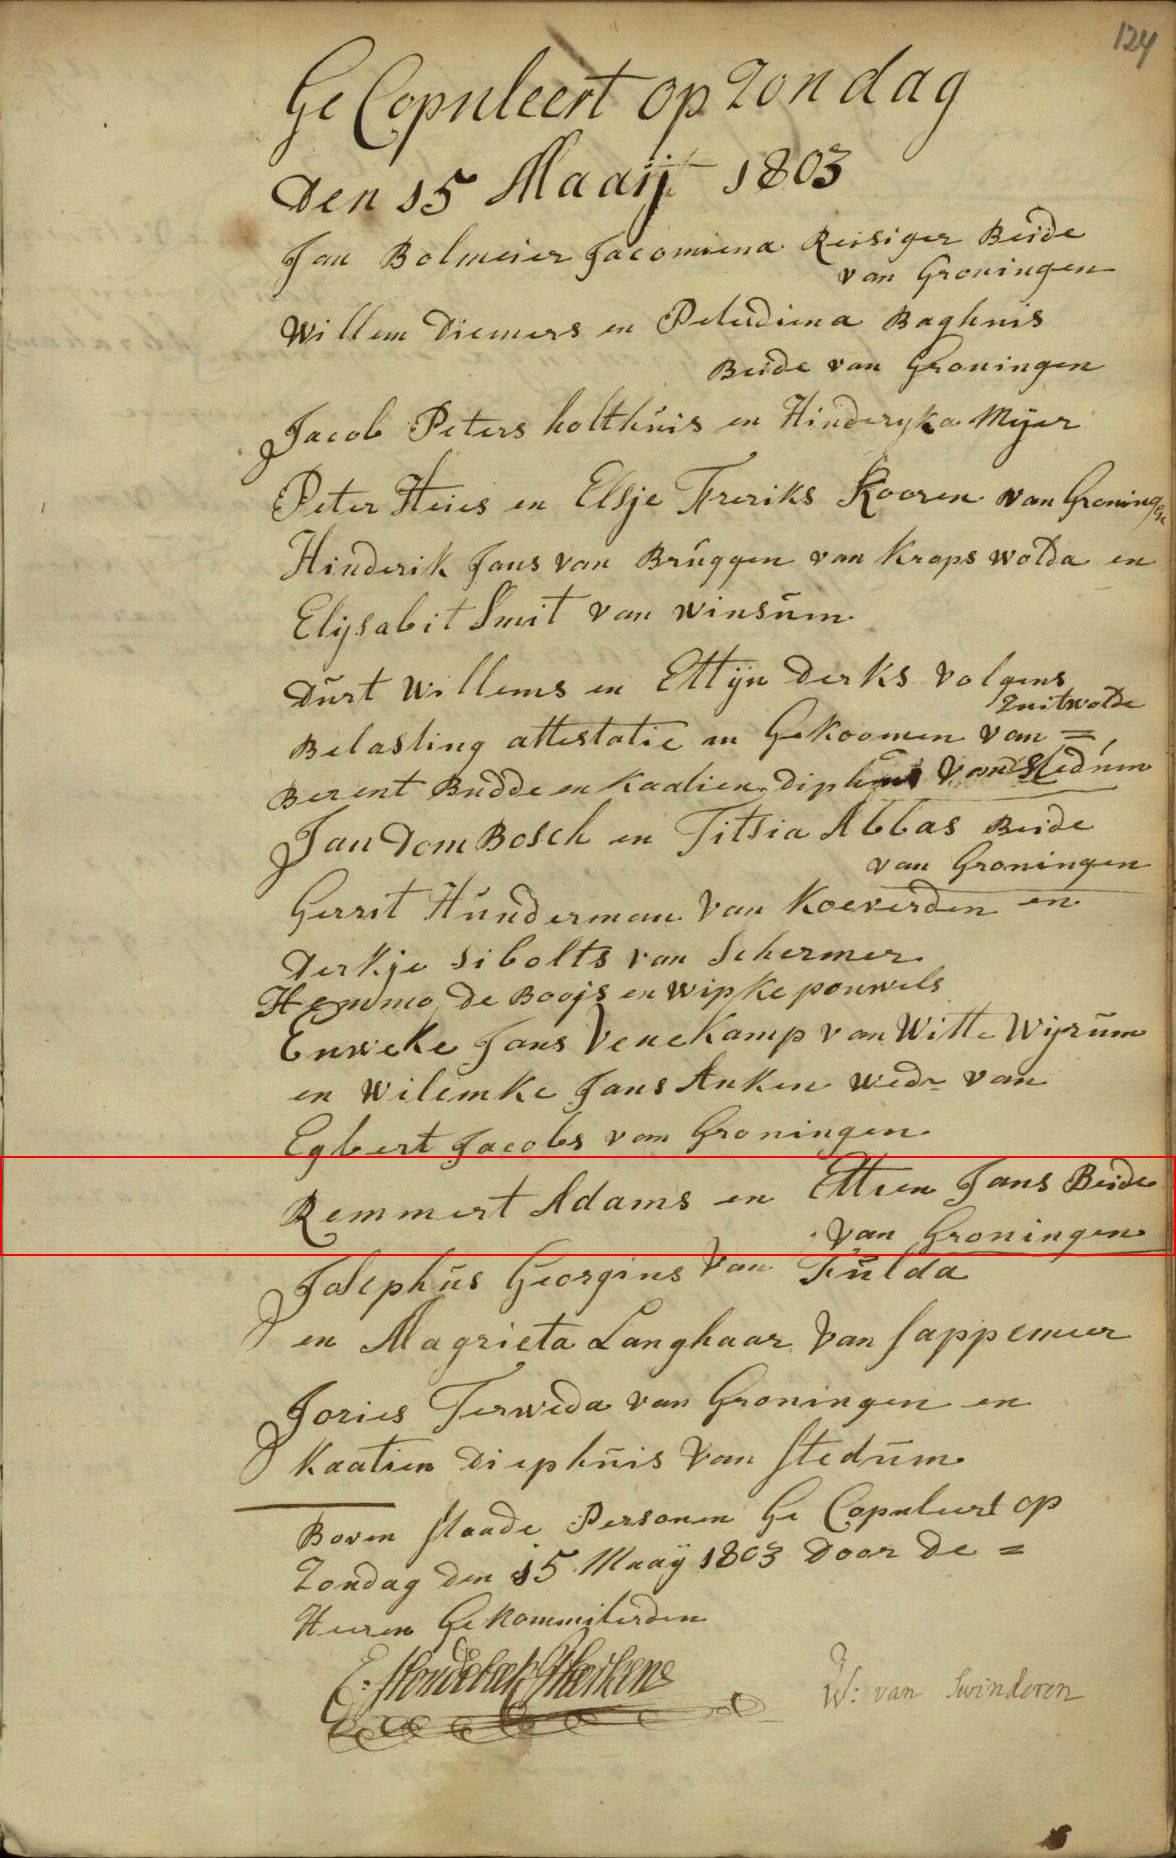 124
Ge Copuleert op Zondag
Den 15 Maaij 1803
Jan Bolmeier Jacomiena Reisiger Beide
van Groningen
Willem Diemers en Peludiena Baghuis
Beide van Groningen
Jacob Peters holthuis en Hinderyka Mijer
Peter Heies en Elsje Freriks Kooren van Groningen
Hinderik Jans van Brúggen van Kropswolda en
Elijsabit Smit van winsúm
Dúrt Willems en Ettijn Derks volgens
Belasting attestatie in Gekoomen van =
Zuitwolde
Berent Budde en Kaatien Van Stedúm
Jan Dom Bosch en Titsia Abbas Beide
van Groningen
Gerrit Húnderman van Koeverden en
Derkje Sibolts van Schermer
Hemmo De Boojs en wipke pouwels
Enweke Jans Venekamp van Witte Wijrúm
en Wilemke Jans Anken wedr van
Egbert Jacobs van Groningen
Remmert Adams en Ettien Jans Beide
van Groningen
Josephús Georgius van Fúlda
en Magrieta Langhaar van Sappemeer
Jories Terweda van Groningen en
Kaatien Diephúis van Stedúm
Boven Staade Personen Ge Copuleert op
Zondag den 15 Maaij 1803 Door De =
Heeren Gekommiterden
W: van Swinderen